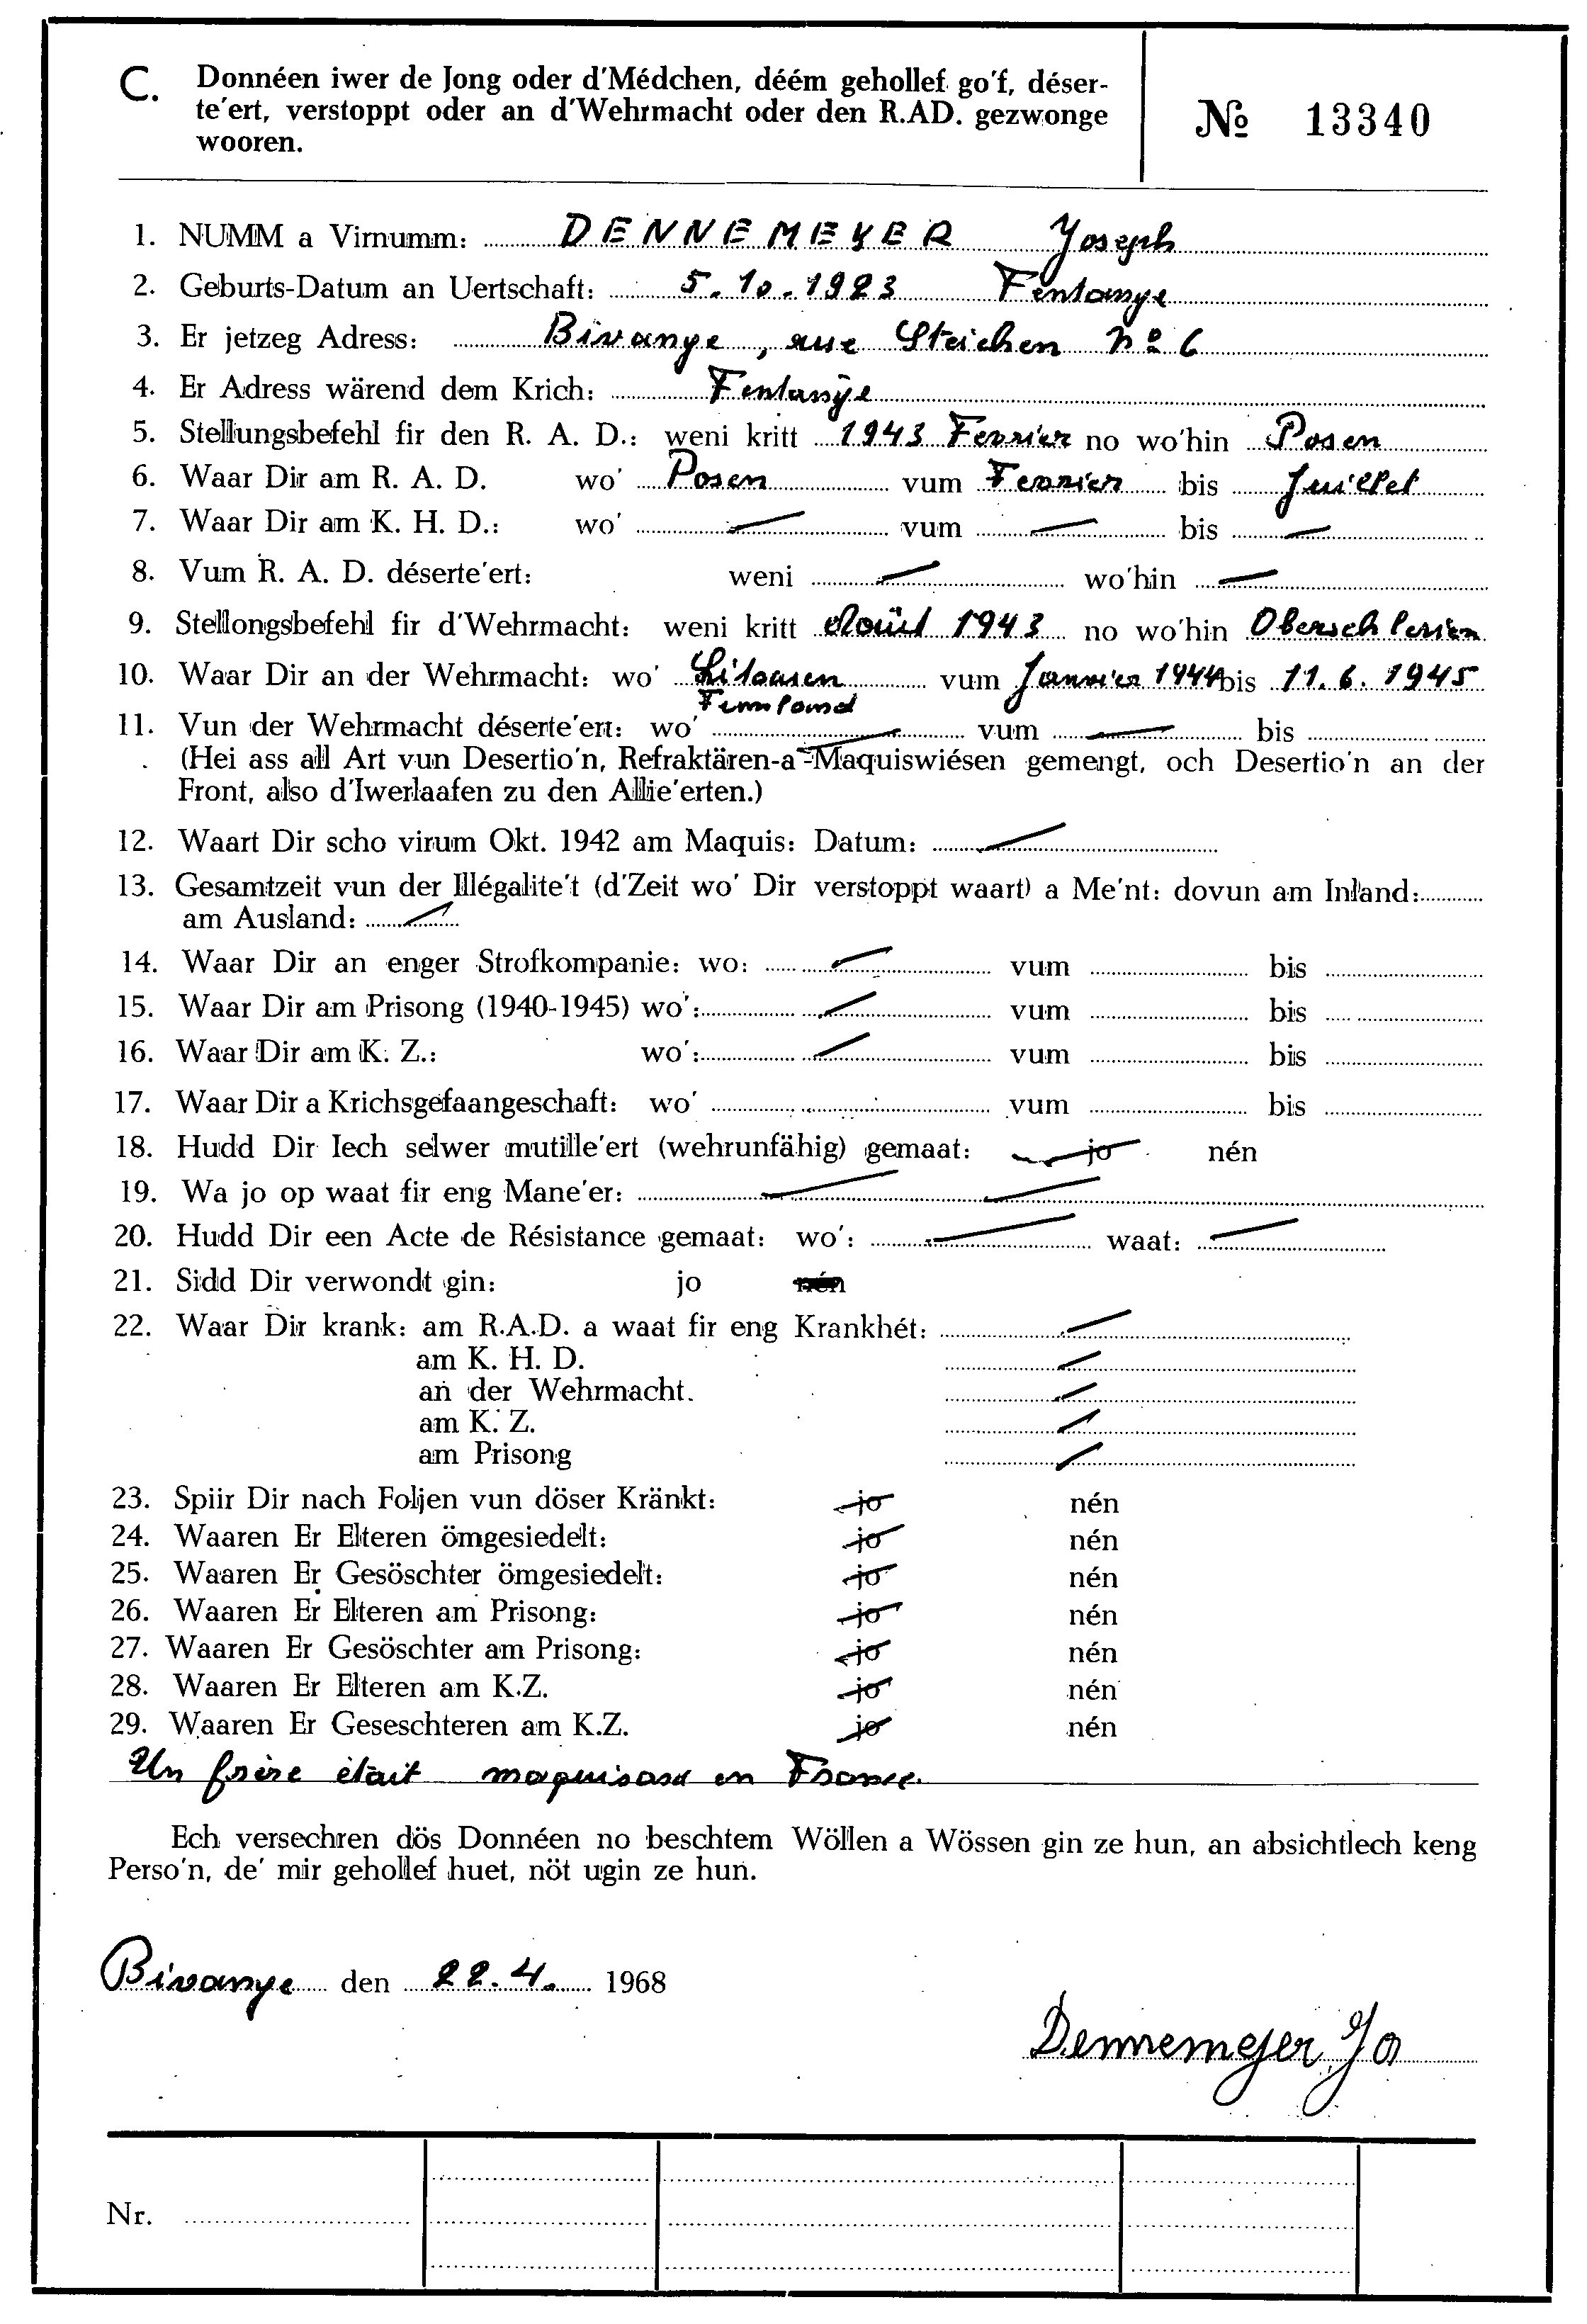 C. Donnéen iwer de Jong oder d'Médchen, déém gehollef go'f, déser-
te'ert, verstoppt oder an d'Wehrmacht oder den R.AD. gezwonge
wooren.
№ 13340
1. NUMM a Virnumm: DENNEMEYER Joseph
2. Geburts-Datum an Uertschaft: 5.10.1923 Fentange
3. Er jetzeg Adress: Bivange, rue Steichen No 6
4. Er Adress wärend dem Krich: Fentange
5. Stellungsbefehl fir den R. A. D.: weni kritt 1943 Fevrier no wo'hin Posen
6. Waar Dir am R. A. D. wo' Posen vum Fevrier bis Juillet
7. Waar Dir am K. H. D.: wo' — vum — bis —
8. Vum R. A. D. déserte'ert: weni — wo'hin —
9. Stellongsbefehl fir d'Wehrmacht: weni kritt Août 1943 no wo'hin Oberschlesien
10. Waar Dir an der Wehrmacht: wo' Litauen vum Janvier 1944 bis 11.6.1945
Finnland
11. Vun der Wehrmacht déserte'ert: wo' — vum — bis
(Hei ass all Art vun Desertio'n, Refraktären-a-Maquiswiésen gemengt, och Desertio'n an der
Front, also d'Iwerlaafen zu den Allie'erten.)
12. Waart Dir scho virum Okt. 1942 am Maquis: Datum: —
13. Gesamtzeit vun der Illégalite't (d'Zeit wo' Dir verstoppt waart) a Me'nt: dovun am Inland:
am Ausland: —
14. Waar Dir an enger Strofkompanie: wo: — vum bis
15. Waar Dir am Prisong (1940-1945) wo': — vum bis
16. Waar Dir am K. Z.: wo': — vum bis
17. Waar Dir a Krichsgefaangeschaft: wo' vum bis
18. Hudd Dir Iech selwer mutille'ert (wehrunfähig) gemaat: jo nén
19. Wa jo op waat fir eng Mane'er: — —
20. Hudd Dir een Acte de Résistance gemaat: wo': — waat: —
21. Sidd Dir verwondt gin: jo nén
22. Waar Dir krank: am R.A.D. a waat fir eng Krankhét: —
am K. H. D. —
an der Wehrmacht. —
am K. Z. —
am Prisong —
23. Spiir Dir nach Foljen vun döser Kränkt: jo nén
24. Waaren Er Elteren ömgesiedelt: jo nén
25. Waaren Er Gesöschter ömgesiedelt: jo nén
26. Waaren Er Elteren am Prisong: jo nén
27. Waaren Er Gesöschter am Prisong: jo nén
28. Waaren Er Elteren am K.Z. jo nén
29. Waaren Er Geseschteren am K.Z. jo nén
Un frère était maquisard en France.
Ech versechren dös Donnéen no beschtem Wöllen a Wössen gin ze hun, an absichtlech keng
Perso'n, de' mir gehollef huet, nöt ugin ze hun.
Bivange den 22.4. 1968
Dennemeyer Jo
Nr.